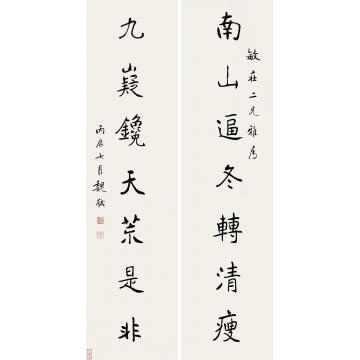 南山逼冬轉清瘦
敏莊二兄雅屬
九嶷鑱天荒是非
丙辰七月魏戫